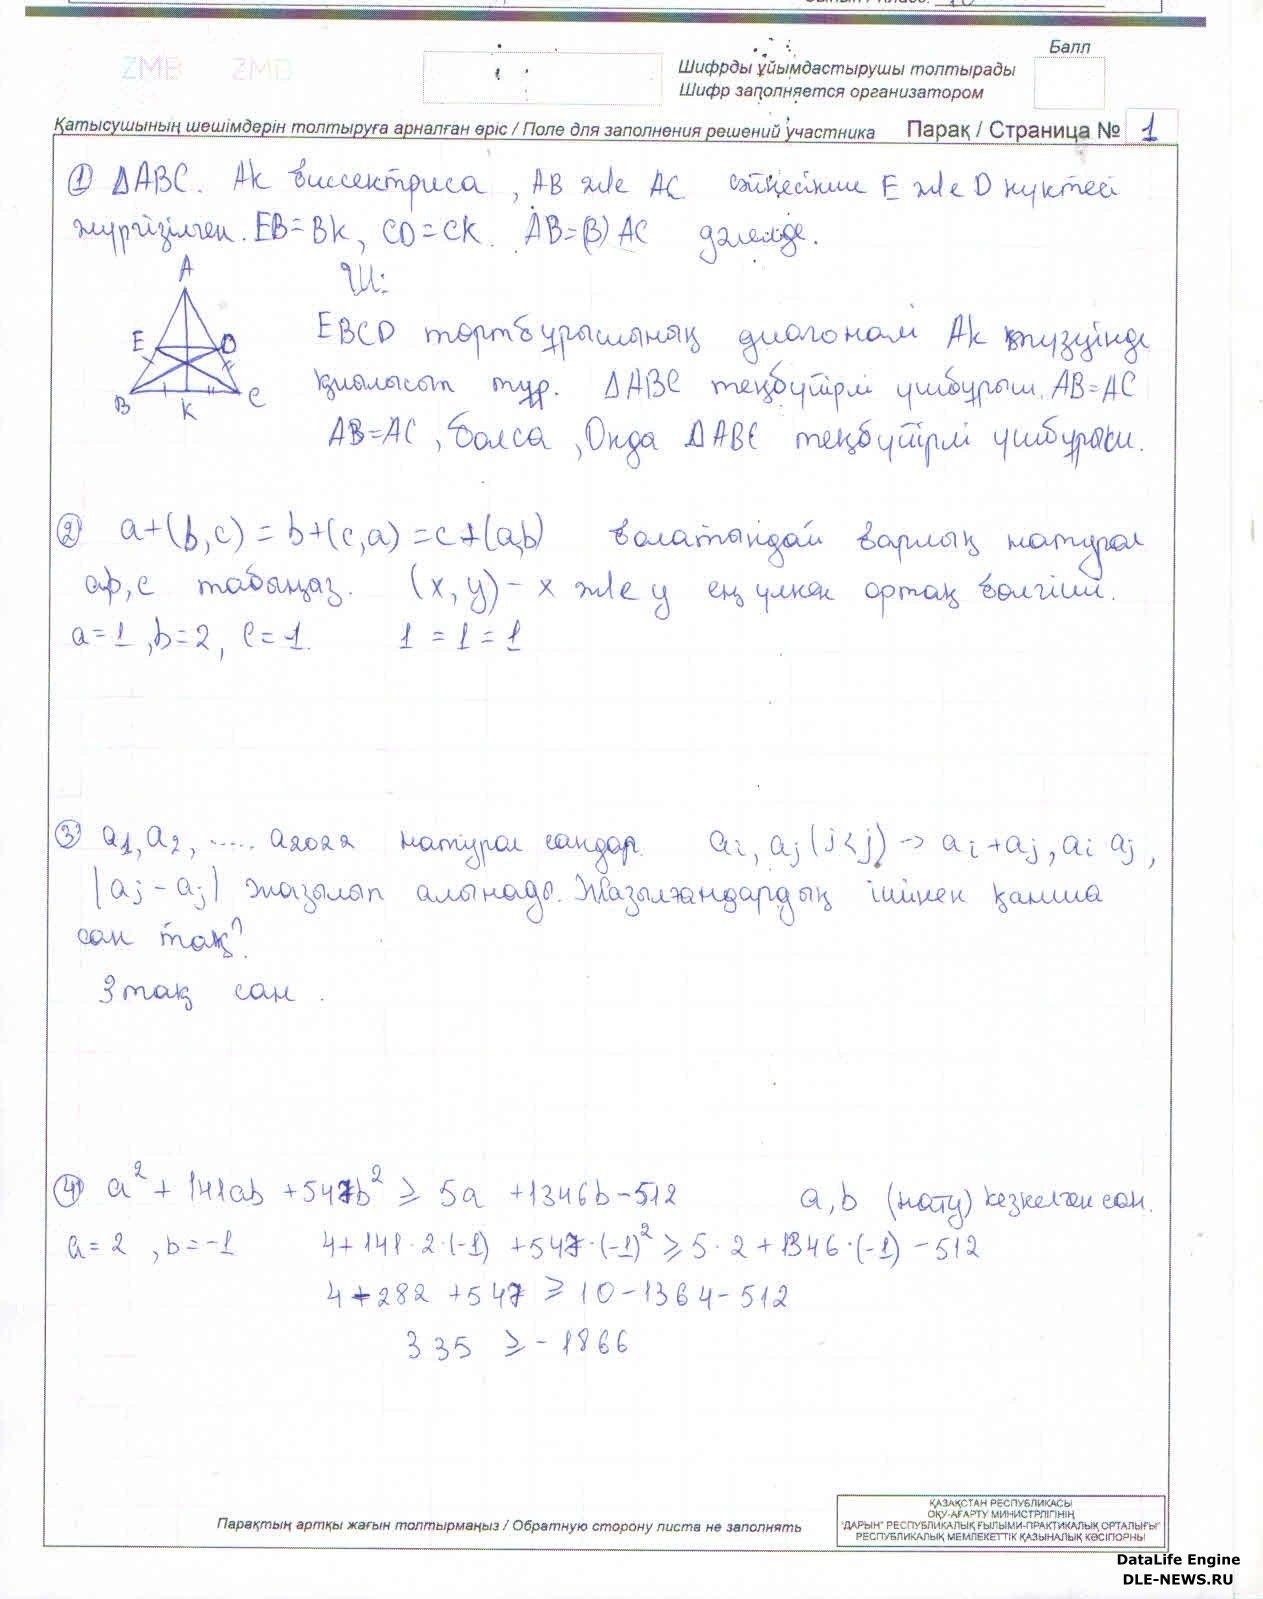 Сынып / Класс: 10
ZMB ZMB
Балл
Шифрды ұйымдастырушы толтырады
Шифр заполняется организатором
Қатысушының шешімдерін толтыруға арналған өріс / Поле для заполнения решений участника Парақ / Страница № 1
① ΔABC. AK биссектриса, AB және AC сәйкесінше E және D нүктесі
жүргізілген. EB=BK, CD=CK. AB=(B) AC дәлелде.
A
Ш:
E D
B K C
EBCD төртбұрышының диагоналі AK түзуінде
қиылысып тұр. ΔABC теңбүйірлі үшбұрыш. AB=AC
AB=AC, болса, Онда ΔABC теңбүйірлі үшбұрыш.
② a+(b,c) = b+(c,a) = c+(a,b) болатындай барлық натурал
a,b,c табыңыз. (x,y) – x және y ең үлкен ортақ бөлгіші.
a=1, b=2, c=1. 1 = 1 = 1
③ a1, a2, ..... a2022 натурал сандар. ai, aj (i<j) -> ai+aj, ai aj,
|ai - aj| жазылып алынады. Жазылғандардың ішінен қанша
сан тақ?
3 тақ сан.
④ a² + 141ab + 547b² ≥ 5a + 1346b - 512 a, b (нату) кезкелген сан.
a=2, b=-1 4+141·2·(-1) +547·(-1)² ≥ 5·2+1346·(-1) -512
4-282 +547 ≥ 10-1364-512
335 ≥ -1866
Парақтың артқы жағын толтырмаңыз / Обратную сторону листа не заполнять
ҚАЗАҚСТАН РЕСПУБЛИКАСЫ
ОҚУ-АҒАРТУ МИНИСТРЛІГІНІҢ
"ДАРЫН" РЕСПУБЛИКАЛЫҚ ҒЫЛЫМИ-ПРАКТИКАЛЫҚ ОРТАЛЫҒЫ"
РЕСПУБЛИКАЛЫҚ МЕМЛЕКЕТТІК ҚАЗЫНАЛЫҚ КӘСІПОРНЫ
DataLife Engine
DLE-NEWS.RU